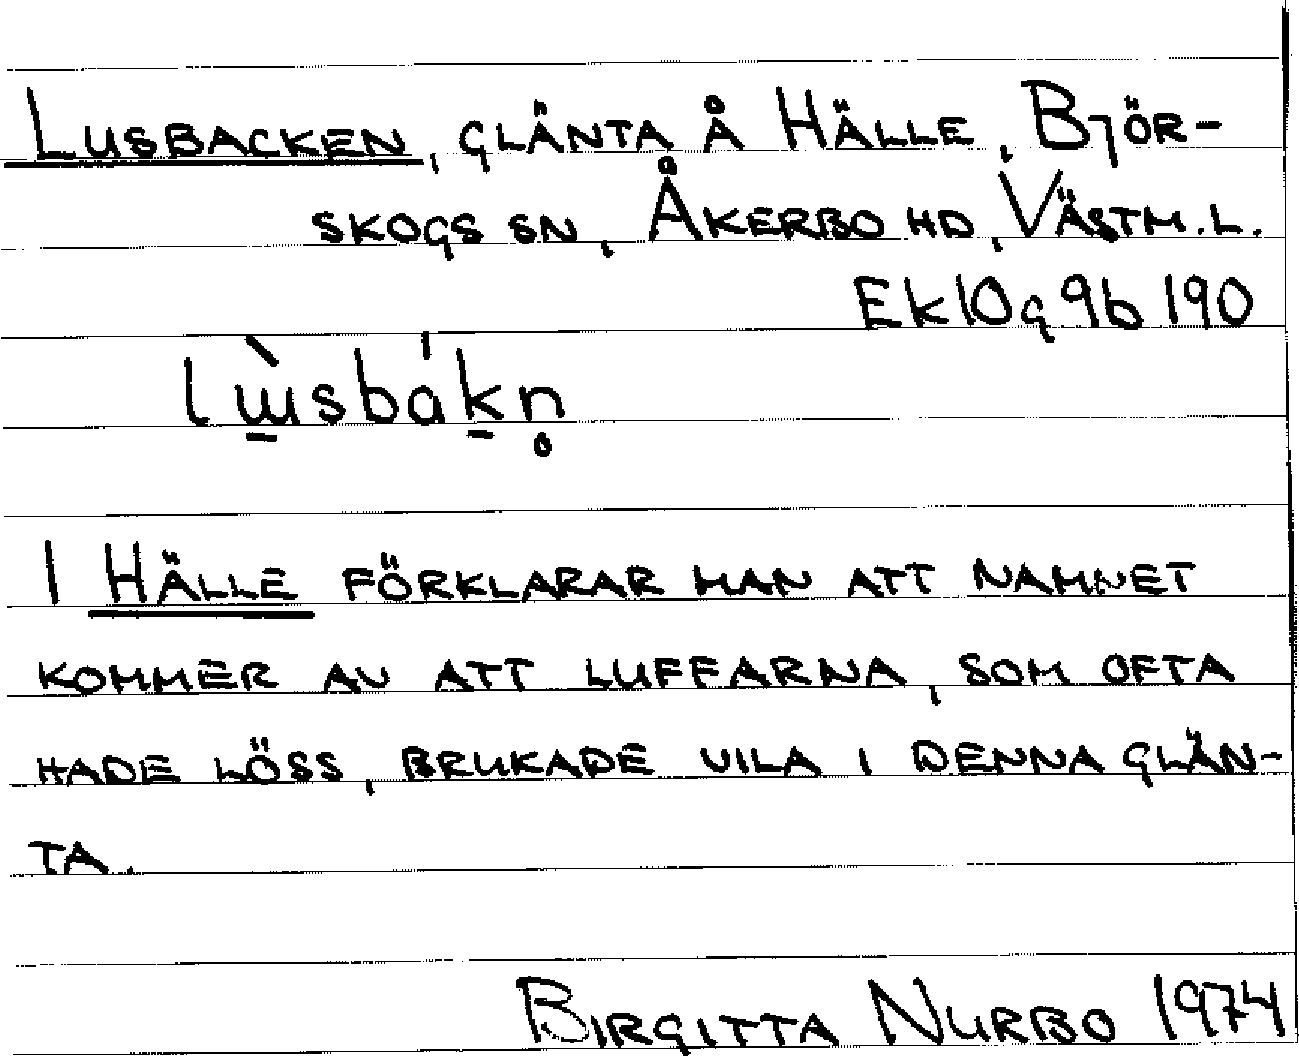 LUSBACKEN, GLÄNTA Å HÄLLE, BJÖR-
SKOGS SN, ÅKERBO HD, VÄSTM. L.
Ek 10g 9b 190
lɯ̠̀sbák̠n̥
I HÄLLE FÖRKLARAR MAN ATT NAMNET
KOMMER AV ATT LUFFARNA, SOM OFTA
HADE LÖSS, BRUKADE VILA I DENNA GLÄN-
TA.
BIRGITTA NURBO 1974